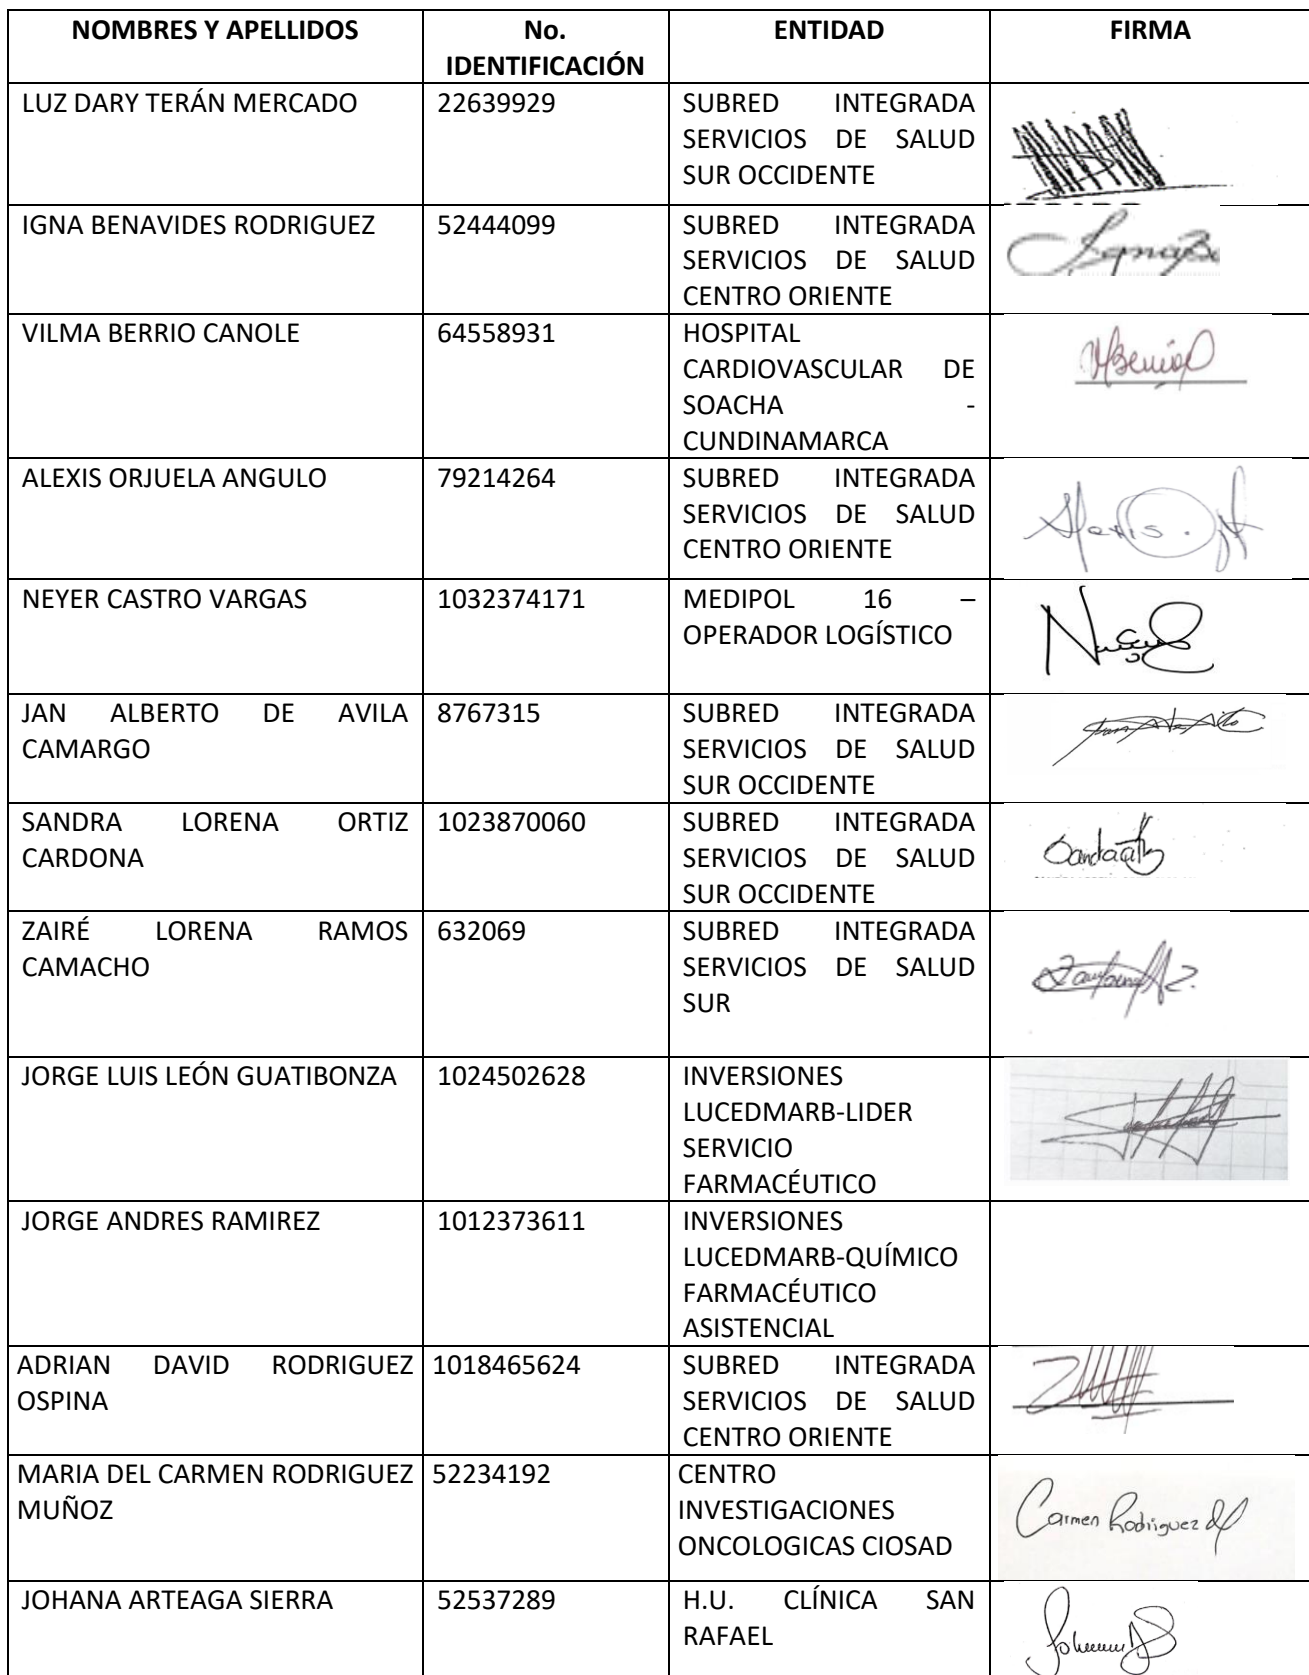 NOMBRES Y APELLIDOS No. ENTIDAD FIRMA
IDENTIFICACIÓN
LUZ DARY TERÁN MERCADO 22639929 SUBRED INTEGRADA
SERVICIOS DE SALUD
SUR OCCIDENTE
IGNA BENAVIDES RODRIGUEZ 52444099 SUBRED INTEGRADA
SERVICIOS DE SALUD
CENTRO ORIENTE
VILMA BERRIO CANOLE 64558931 HOSPITAL
CARDIOVASCULAR DE
SOACHA -
CUNDINAMARCA
ALEXIS ORJUELA ANGULO 79214264 SUBRED INTEGRADA
SERVICIOS DE SALUD
CENTRO ORIENTE
NEYER CASTRO VARGAS 1032374171 MEDIPOL 16 –
OPERADOR LOGÍSTICO
JAN ALBERTO DE AVILA 8767315 SUBRED INTEGRADA
CAMARGO SERVICIOS DE SALUD
SUR OCCIDENTE
SANDRA LORENA ORTIZ 1023870060 SUBRED INTEGRADA
CARDONA SERVICIOS DE SALUD
SUR OCCIDENTE
ZAIRÉ LORENA RAMOS 632069 SUBRED INTEGRADA
CAMACHO SERVICIOS DE SALUD
SUR
JORGE LUIS LEÓN GUATIBONZA 1024502628 INVERSIONES
LUCEDMARB-LIDER
SERVICIO
FARMACÉUTICO
JORGE ANDRES RAMIREZ 1012373611 INVERSIONES
LUCEDMARB-QUÍMICO
FARMACÉUTICO
ASISTENCIAL
ADRIAN DAVID RODRIGUEZ 1018465624 SUBRED INTEGRADA
OSPINA SERVICIOS DE SALUD
CENTRO ORIENTE
MARIA DEL CARMEN RODRIGUEZ 52234192 CENTRO
MUÑOZ INVESTIGACIONES Carmen Rodriguez
ONCOLOGICAS CIOSAD
JOHANA ARTEAGA SIERRA 52537289 H.U. CLÍNICA SAN
RAFAEL